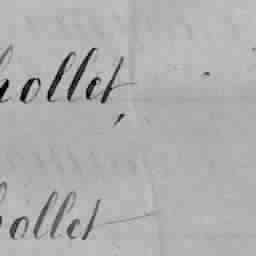 hollet,
hollet